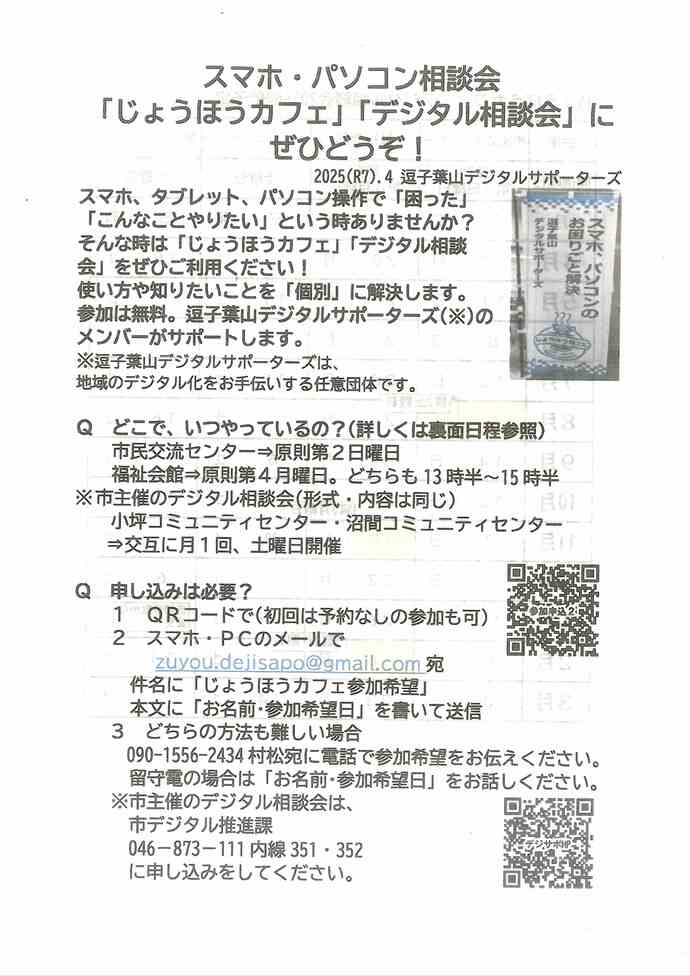 スマホ・パソコン相談会
「じょうほうカフェ」「デジタル相談会」に
ぜひどうぞ！
2025(R7).4 逗子葉山デジタルサポーターズ
スマホ、タブレット、パソコン操作で「困った」
「こんなことやりたい」という時ありませんか？
そんな時は「じょうほうカフェ」「デジタル相談
会」をぜひご利用ください！
使い方や知りたいことを「個別」に解決します。
参加は無料。逗子葉山デジタルサポーターズ(※)の
メンバーがサポートします。
※逗子葉山デジタルサポーターズは、
地域のデジタル化をお手伝いする任意団体です。
スマホ、パソコンの
お困りごと解決
逗子葉山
デジタルサポーターズ
Q どこで、いつやっているの？(詳しくは裏面日程参照)
市民交流センター⇒原則第２日曜日
福祉会館⇒原則第４月曜日。どちらも13時半～15時半
※市主催のデジタル相談会(形式・内容は同じ)
小坪コミュニティセンター・沼間コミュニティセンター
⇒交互に月１回、土曜日開催
Q 申し込みは必要？
１ ＱＲコードで(初回は予約なしの参加も可)
参加申込２
２ スマホ・ＰＣのメールで
zuyou.dejisapo@gmail.com 宛
件名に「じょうほうカフェ参加希望」
本文に「お名前・参加希望日」を書いて送信
３ どちらの方法も難しい場合
090-1556-2434 村松宛に電話で参加希望をお伝えください。
留守電の場合は「お名前・参加希望日」をお話しください。
※市主催のデジタル相談会は、
市デジタル推進課
046－873－111 内線 351・352
に申し込みをしてください。
デジサポHP